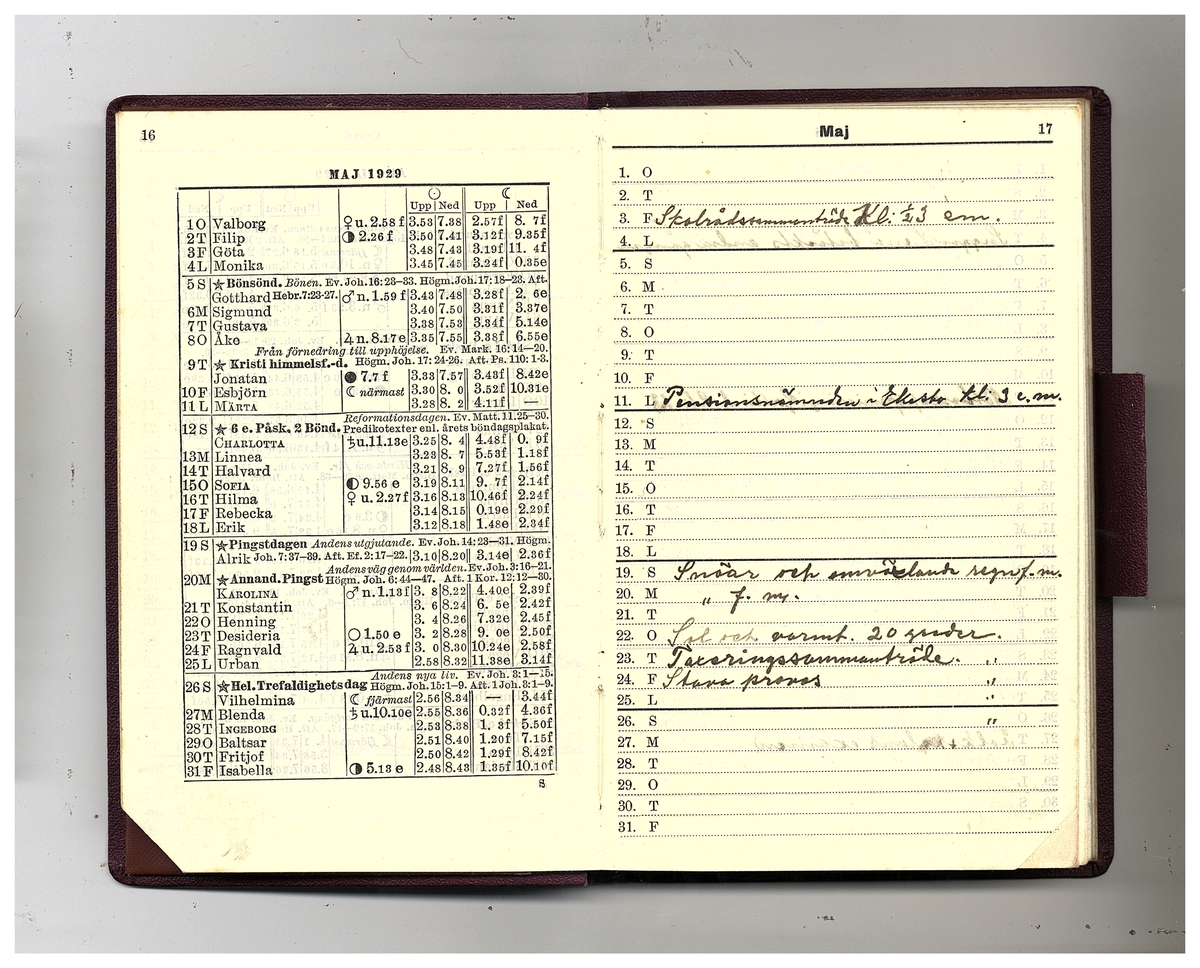 16
MAJ 1929
☉ ☾
Upp Ned Upp Ned
1 O Valborg ♀ u. 2.58 f 3.53 7.38 2.57f 8. 7f
2 T Filip ◑ 2.26 f 3.50 7.41 3.12f 9.35f
3 F Göta 3.48 7.43 3.19f 11. 4f
4 L Monika 3.45 7.45 3.24f 0.35e
5 S ★ Bönsönd. Bönen. Ev. Joh. 16: 23–33. Högm. Joh. 17: 18–23. Aft.
Gotthard Hebr. 7:23-27. ♂ n. 1.59 f 3.43 7.48 3.28f 2. 6e
6 M Sigmund 3.40 7.50 3.31f 3.37e
7 T Gustava 3.38 7.53 3.34f 5.14e
8 O Åke ♃ n. 8.17 e 3.35 7.55 3.38f 6.55e
Från förnedring till upphöjelse. Ev. Mark. 16: 14–20.
9 T ★ Kristi himmelsf.-d. Högm. Joh. 17: 24-26. Aft. Ps. 110: 1-3.
Jonatan ● 7.7 f 3.33 7.57 3.43f 8.42e
10 F Esbjörn ☾ närmast 3.30 8. 0 3.52f 10.31e
11 L MÄRTA 3.28 8. 2 4.11f —
Reformationsdagen. Ev. Matt. 11. 25–30.
12 S ★ 6 e. Påsk. 2 Bönd. Predikotexter enl. årets böndagsplakat.
CHARLOTTA ♄ u. 11.13e 3.25 8. 4 4.48f 0. 9f
13 M Linnea 3.23 8. 7 5.53f 1.18f
14 T Halvard 3.21 8. 9 7.27f 1.56f
15 O SOFIA ◐ 9.56 e 3.19 8.11 9. 7f 2.14f
16 T Hilma ♀ u. 2.27f 3.16 8.13 10.46f 2.24f
17 F Rebecka 3.14 8.15 0.19e 2.29f
18 L Erik 3.12 8.18 1.48e 2.34f
19 S ★ Pingstdagen Andens utgjutande. Ev. Joh. 14: 23–31. Högm.
Alrik Joh. 7: 37–39. Aft. Ef. 2: 17–22. 3.10 8.20 3.14e 2.36f
Andens väg genom världen. Ev. Joh. 3: 16–21.
20 M ★ Annand. Pingst Högm. Joh. 6: 44–47. Aft. 1 Kor. 12: 12–30.
KAROLINA ♂ n. 1.13f 3. 8 8.22 4.40e 2.39f
21 T Konstantin 3. 6 8.24 6. 5e 2.42f
22 O Henning 3. 4 8.26 7.32e 2.45f
23 T Desideria ○ 1.50 e 3. 2 8.28 9. 0e 2.50f
24 F Ragnvald ♃ u. 2.53 f 3. 0 8.30 10.24e 2.58f
25 L Urban 2.58 8.32 11.38e 3.14f
Andens nya liv. Ev. Joh. 3: 1–15.
26 S ★ Hel. Trefaldighetsdag Högm. Joh. 15: 1–9. Aft. 1 Joh. 3: 1–9.
Vilhelmina ☾ fjärmast 2.56 8.34 — 3.44f
27 M Blenda ♄ u. 10.10e 2.55 8.36 0.32f 4.36f
28 T INGEBORG 2.53 8.38 1. 3f 5.50f
29 O Baltsar 2.51 8.40 1.20f 7.15f
30 T Fritjof 2.50 8.42 1.29f 8.42f
31 F Isabella ◑ 5.13 e 2.48 8.43 1.35f 10.10f
S
Maj 17
1. O
2. T
3. F Skolrådssammanträde Kl: ½3 em.
4. L
5. S
6. M
7. T
8. O
9. T
10. F
11. L Pensionsnämnden i Eksta kl: 3 e.m.
12. S
13. M
14. T
15. O
16. T
17. F
18. L
19. S Snöar och omväxlande regn f.m.
20. M „ f. m.
21. T
22. O Sol och varmt. 20 grader.
23. T Taxeringssammanträde. „
24. F Stava provas „
25. L „
26. S „
27. M
28. T
29. O
30. T
31. F